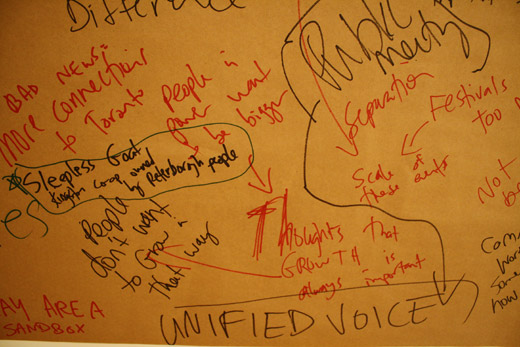 Difference
BAD NEWS:
more connections
to Toronto
People in
power want
to be bigger
Public
Separation
Festivals
too
Sleepless Goat
Kingston co-op owned
by Peterborough people
es
People
don't want
to Grow in
that way
Scale of
these events
Thoughts that
GROWTH is
always important
Not
AY AREA
SANDBOX
UNIFIED VOICE
how